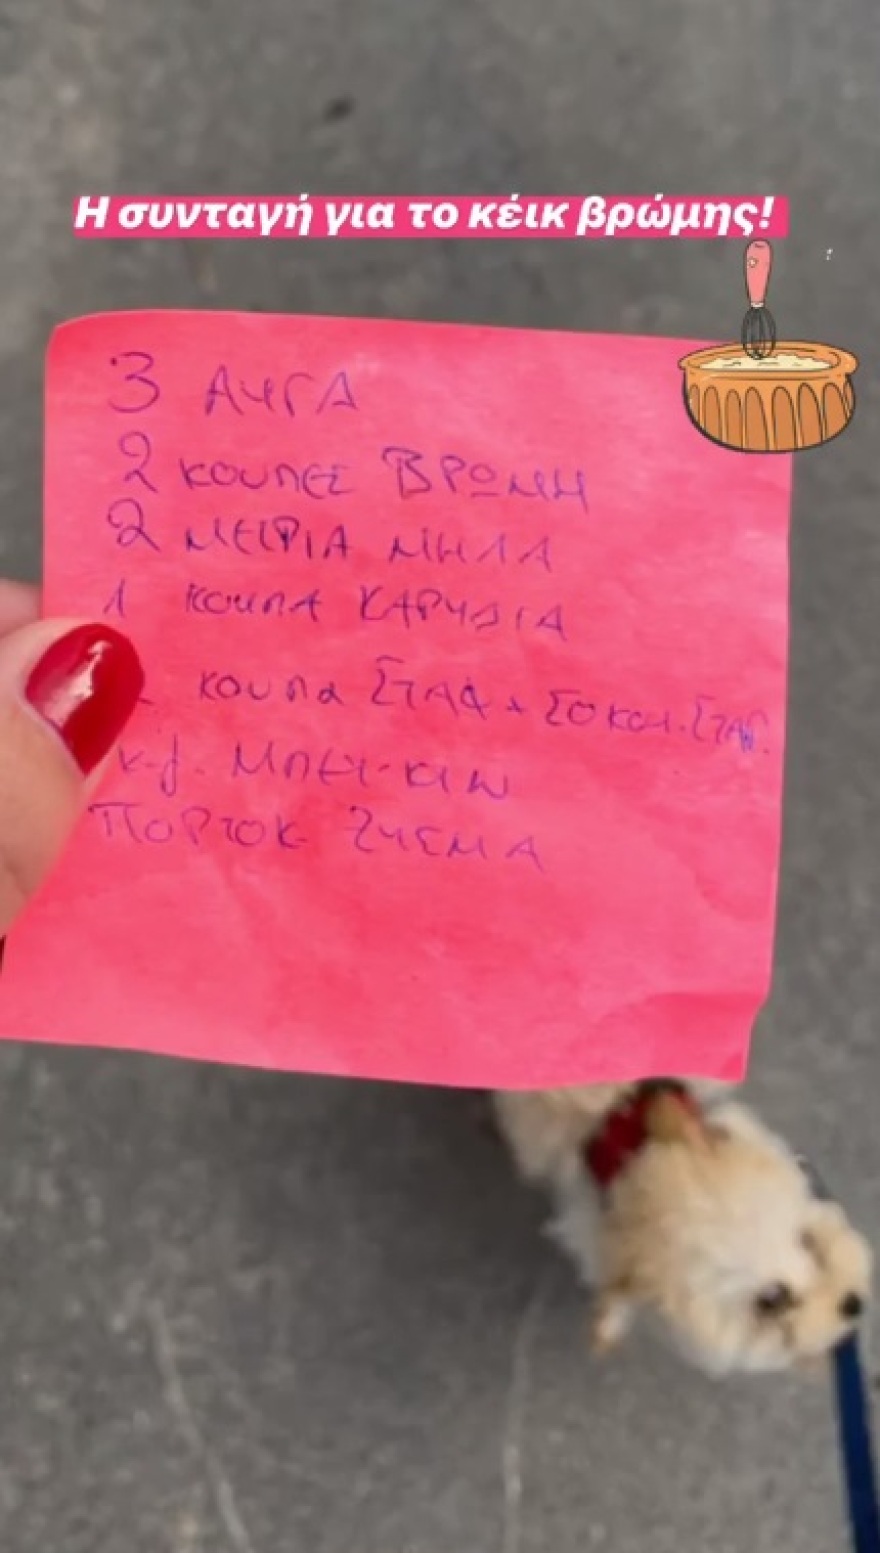 Η συνταγή για το κέικ βρώμης!
3 ΑΥΓΑ
2 ΚΟΥΠΕΣ ΒΡΩΜΗ
2 ΜΕΤΡΙΑ ΜΗΛΑ
1 ΚΟΥΠΑ ΚΑΡΥΔΙΑ
κουπα ΣΤΑΦ + ΣΟΚΟΛ. ΣΤΑΓ.
κ.γ. ΜΠΕΪ-ΚΙΝ
ΠΟΡΤΟΚ ΖΥΣΜΑ